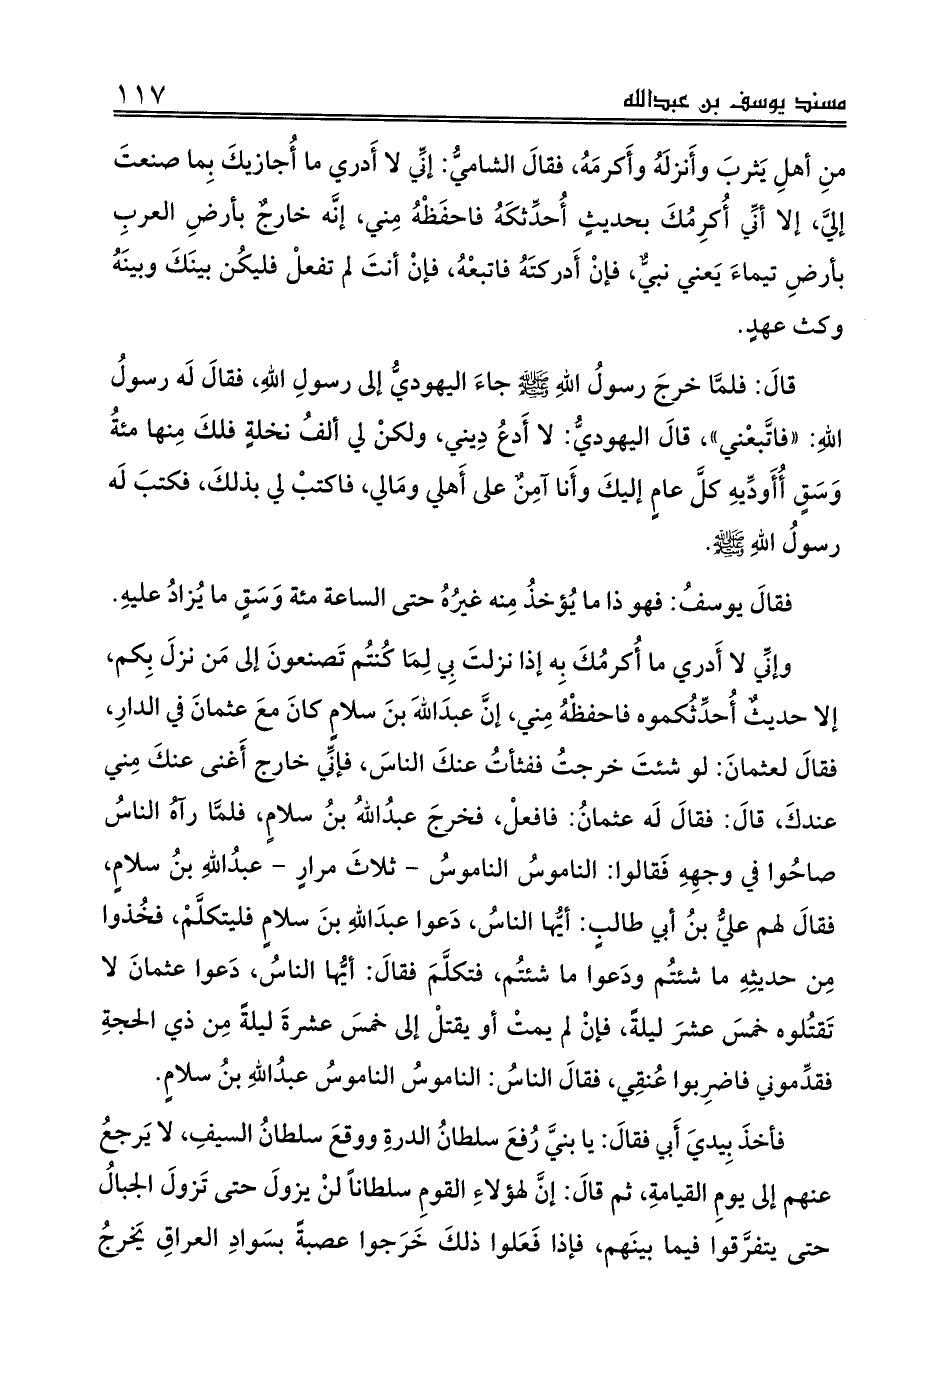 مسند يوسف بن عبدالله ١١٧
منِ أهلِ يَثربَ وأَنزلَهُ وأَكرمَهُ، فقالَ الشاميُّ: إنِّي لا أَدري ما أُجازيكَ بِما صنعتَ
إليَّ، إلا أنِّي أُكرِمُكَ بحديثٍ أُحدِّثكَهُ فاحفَظْهُ مِني، إنَّه خارجٌ بأَرضِ العربِ
بأرضِ تيماءَ يَعني نبيٌّ، فإنْ أَدركتَهُ فاتبعْهُ، فإنْ أنتَ لم تفعلْ فليكُن بينَكَ وبينَهُ
وكث عهدٍ.
قالَ: فلمَّا خرجَ رسولُ اللهِ ﷺ جاءَ اليهوديُّ إلى رسولِ اللهِ، فقالَ لَه رسولُ
اللهِ: «فاتَّبعْني»، قالَ اليهوديُّ: لا أَدعُ دِيني، ولكنْ لي ألفُ نخلةٍ فلكَ مِنها مئةُ
وَسَقٍ أُأَودِّيهِ كلَّ عامٍ إليكَ وأَنا آمِنٌ على أَهلي ومَالي، فاكتبْ لي بذلكَ، فكتبَ لَه
رسولُ اللهِ ﷺ.
فقالَ يوسفُ: فهو ذا ما يُؤخذُ مِنه غيرُهُ حتى الساعة مئة وَسَقٍ ما يُزادُ عليهِ.
وإنِّي لا أَدري ما أُكرمُكَ بِه إذا نزلتَ بِي لِمَا كُنتُم تَصنعونَ إلى مَن نزلَ بِكم،
إلا حديثٌ أُحدِّثُكموه فاحفظْهُ مِني، إنَّ عبدَاللهَ بنَ سلامٍ كانَ معَ عثمانَ في الدارِ،
فقالَ لعثمانَ: لو شئتَ خرجتُ ففثأتُ عنكَ الناسَ، فإنِّي خارج أَغنى عنكَ مِني
عندكَ، قالَ: فقالَ لَه عثمانُ: فافعلْ، فخرجَ عبدُاللهُ بنُ سلامٍ، فلمَّا رآهُ الناسُ
صاحُوا في وجهِهِ فَقالوا: الناموسُ الناموسُ - ثلاثَ مرارٍ - عبدُاللهِ بنُ سلامٍ،
فقالَ لهم عليُّ بنُ أبي طالبٍ: أيُّها الناسُ، دَعوا عبدَاللهِ بنَ سلامٍ فليتكلَّمْ، فخُذوا
مِن حديثِهِ ما شئتُم ودَعوا ما شئتُم، فتكلَّمَ فقالَ: أيُّها الناسُ، دَعوا عثمانَ لا
تَقتُلوه خمسَ عشرَ ليلةً، فإنْ لم يمتْ أو يقتلْ إلى خمسَ عشرةَ ليلةً مِن ذي الحجةِ
فقدِّموني فاضرِبوا عُنقِي، فقالَ الناسُ: الناموسُ الناموسُ عبدُاللهِ بنُ سلامٍ.
فأَخذَ بِيديَ أَبي فقالَ: يا بنيَّ رُفعَ سلطانُ الدرةِ ووقعَ سلطانُ السيفِ، لا يَرجعُ
عنهم إلى يومِ القيامةِ، ثم قالَ: إنَّ لهؤلاءِ القومِ سلطاناً لنْ يزولَ حتى تَزولَ الجبالُ
حتى يتفرَّقوا فيما بينَهم، فإذا فَعَلوا ذلكَ خَرَجوا عصبةً بسَوادِ العراقِ يَخرجُ